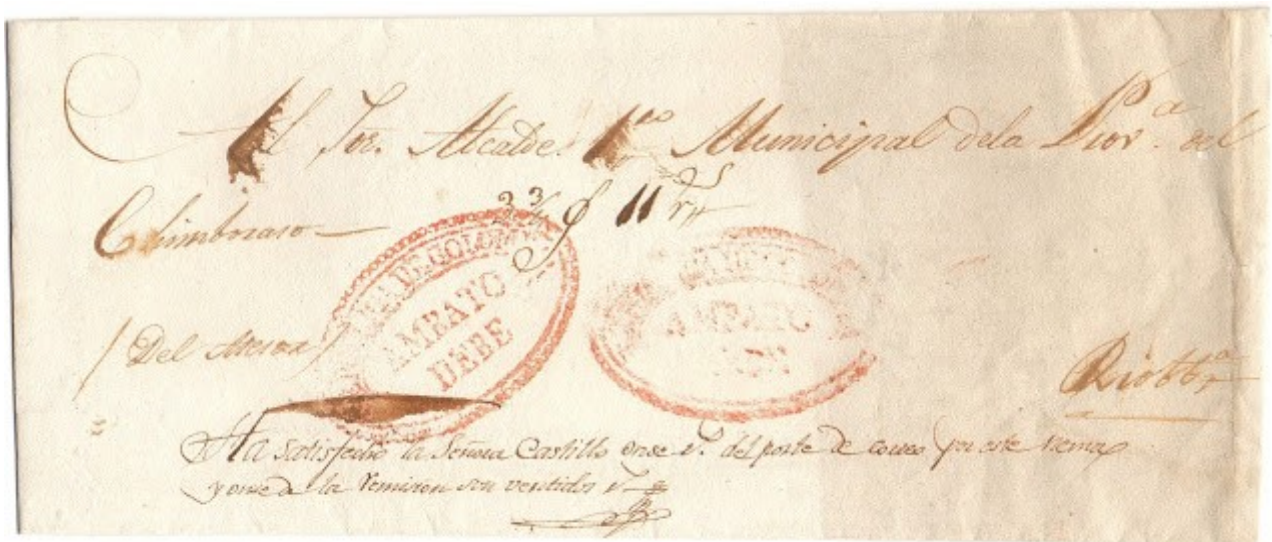 Al Sor. Alcalde 1ro Municipal dela Prova. del
Chimboraso
3 3/4 11 rs
DE COLOM
AMBATO
DEBE
AMBATO
Riobba
Ha satisfecho la Señora Castillo onse rs. del porte de correo por este
y onse a la remision son ventidos rs